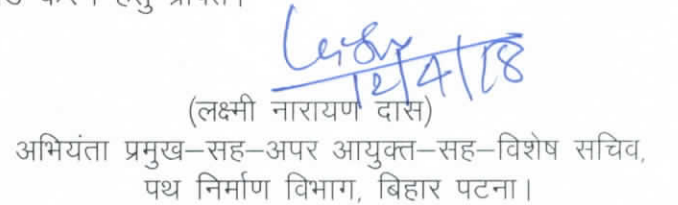 करने हेतु प्रेषित।
12/4/18
(लक्ष्मी नारायण दास)
अभियंता प्रमुख–सह–अपर आयुक्त–सह–विशेष सचिव,
पथ निर्माण विभाग, बिहार पटना।